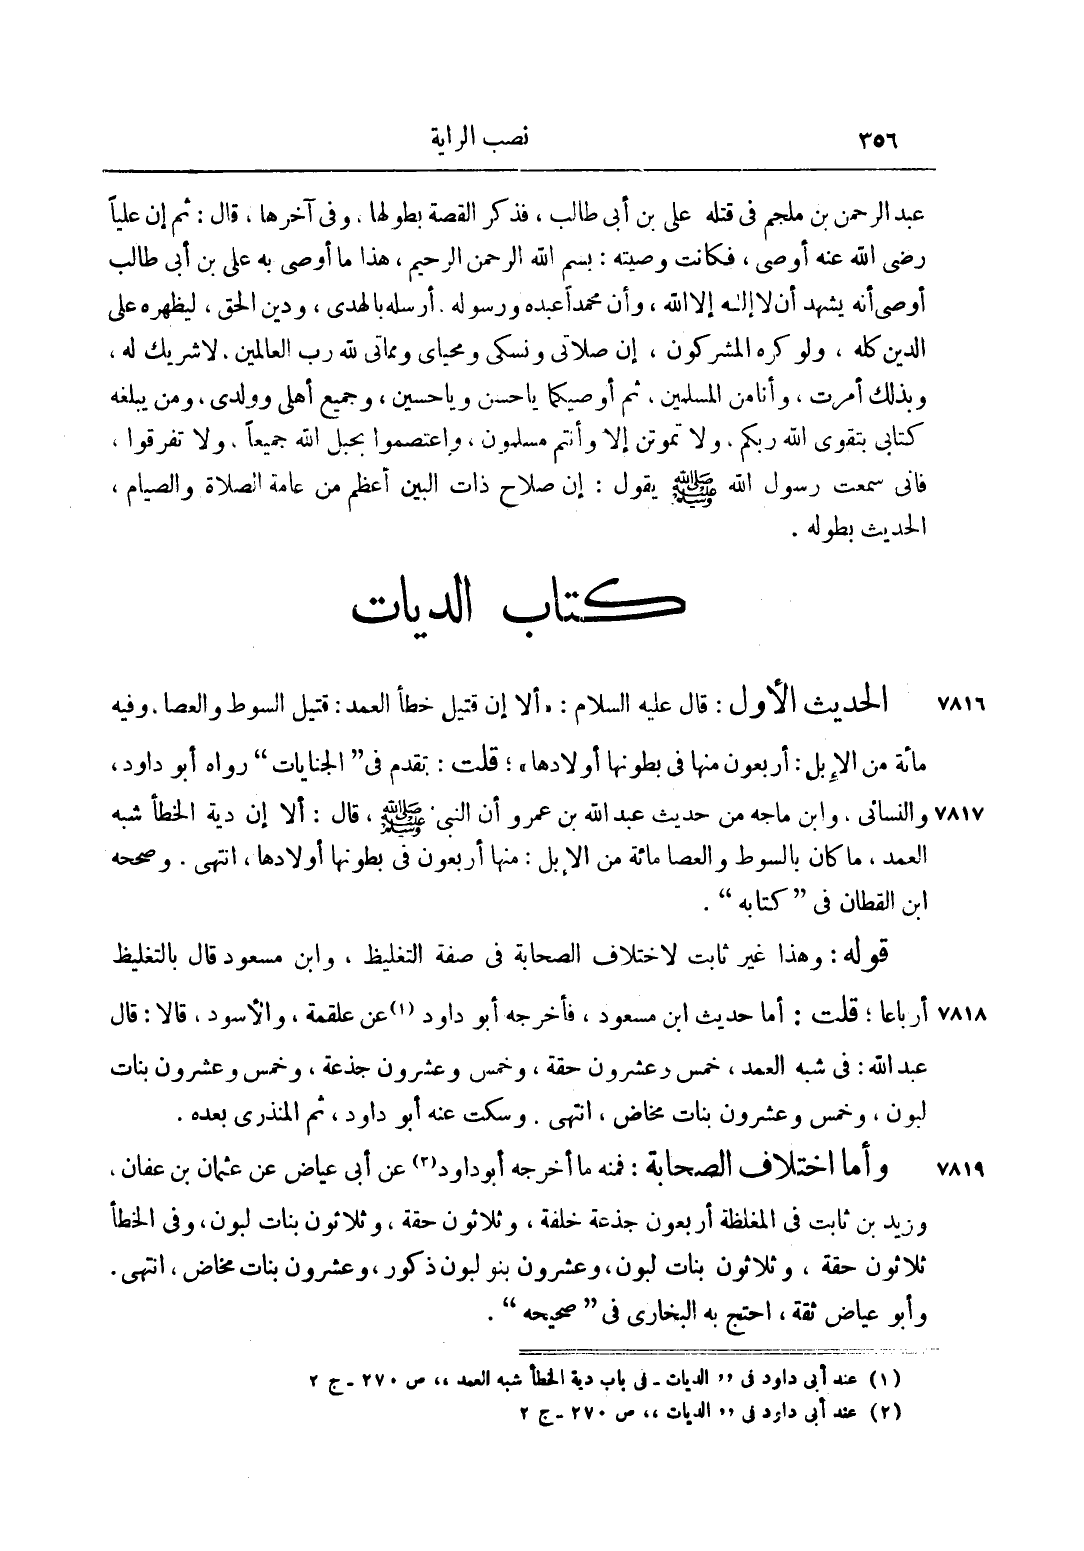 ٣٥٦ نصب الراية
عبد الرحمن بن ملجم فى قتله على بن أبى طالب ، فذكر القصة بطولها ، وفى آخرها ، قال : ثم إن علياً
رضى الله عنه أوصى ، فكانت وصيته : بسم الله الرحمن الرحيم ، هذا ما أوصى به على بن أبى طالب
أوصى أنه يشهد أن لا إله إلا الله ، وأن محمداً عبده ورسوله . أرسله بالهدى ، ودين الحق ، ليظهره على
الدين كله ، ولو كره المشركون ، إن صلاتى ونسكى ومحياى ومماتى لله رب العالمين . لا شريك له ،
وبذلك أمرت ، وأنا من المسلمين . ثم أوصيكما ياحسن وياحسين ، وجميع أهلى وولدى ، ومن يبلغه
كتابى بتقوى الله ربكم . ولا تموتن إلا وأنتم مسلمون ، واعتصموا بحبل الله جميعاً . ولا تفرقوا ،
فانى سمعت رسول الله ﷺ يقول : إن صلاح ذات البين أعظم من عامة الصلاة والصيام ،
الحديث بطوله .
كتاب الديات
٧٨١٦ الحديث الأول : قال عليه السلام : « ألا إن قتيل خطأ العمد : قتيل السوط والعصا . وفيه
مائة من الإبل : أربعون منها فى بطونها أولادها » ؛ قلت : تقدم فى ” الجنايات “ رواه أبو داود ،
٧٨١٧ والنسائى . وابن ماجه من حديث عبد الله بن عمرو أن النبى ﷺ ، قال : ألا إن دية الخطأ شبه
العمد ، ما كان بالسوط والعصا مائة من الإبل : منها أربعون فى بطونها أولادها ، انتهى . وصححه
ابن القطان فى ” كتابه “ .
قوله : وهذا غير ثابت لاختلاف الصحابة فى صفة التغليظ ، وابن مسعود قال بالتغليظ
٧٨١٨ أرباعا ؛ قلت : أما حديث ابن مسعود ، فأخرجه أبو داود (١) عن علقمة ، والأسود ، قالا : قال
عبد الله : فى شبه العمد ، خمس وعشرون حقة ، وخمس وعشرون جذعة ، وخمس وعشرون بنات
لبون ، وخمس وعشرون بنات مخاض ، انتهى . وسكت عنه أبو داود ، ثم المنذرى بعده .
٧٨١٩ وأما اختلاف الصحابة : فمنه ما أخرجه أبو داود (٢) عن أبى عياض عن عثمان بن عفان ،
وزيد بن ثابت فى المغلظة أربعون جذعة خلفة ، وثلاثون حقة ، وثلاثون بنات لبون ، وفى الخطأ
ثلاثون حقة ، وثلاثون بنات لبون ، وعشرون بنو لبون ذكور ، وعشرون بنات مخاض ، انتهى .
وأبو عياض ثقة ، احتج به البخارى فى ” صحيحه “ .
(١) عند أبى داود فى ,, الديات - فى باب دية الخطأ شبه العمد ،، ص ٢٧٠ - ج ٢
(٢) عند أبى داود فى ,, الديات ،، ص ٢٧٠ - ج ٢